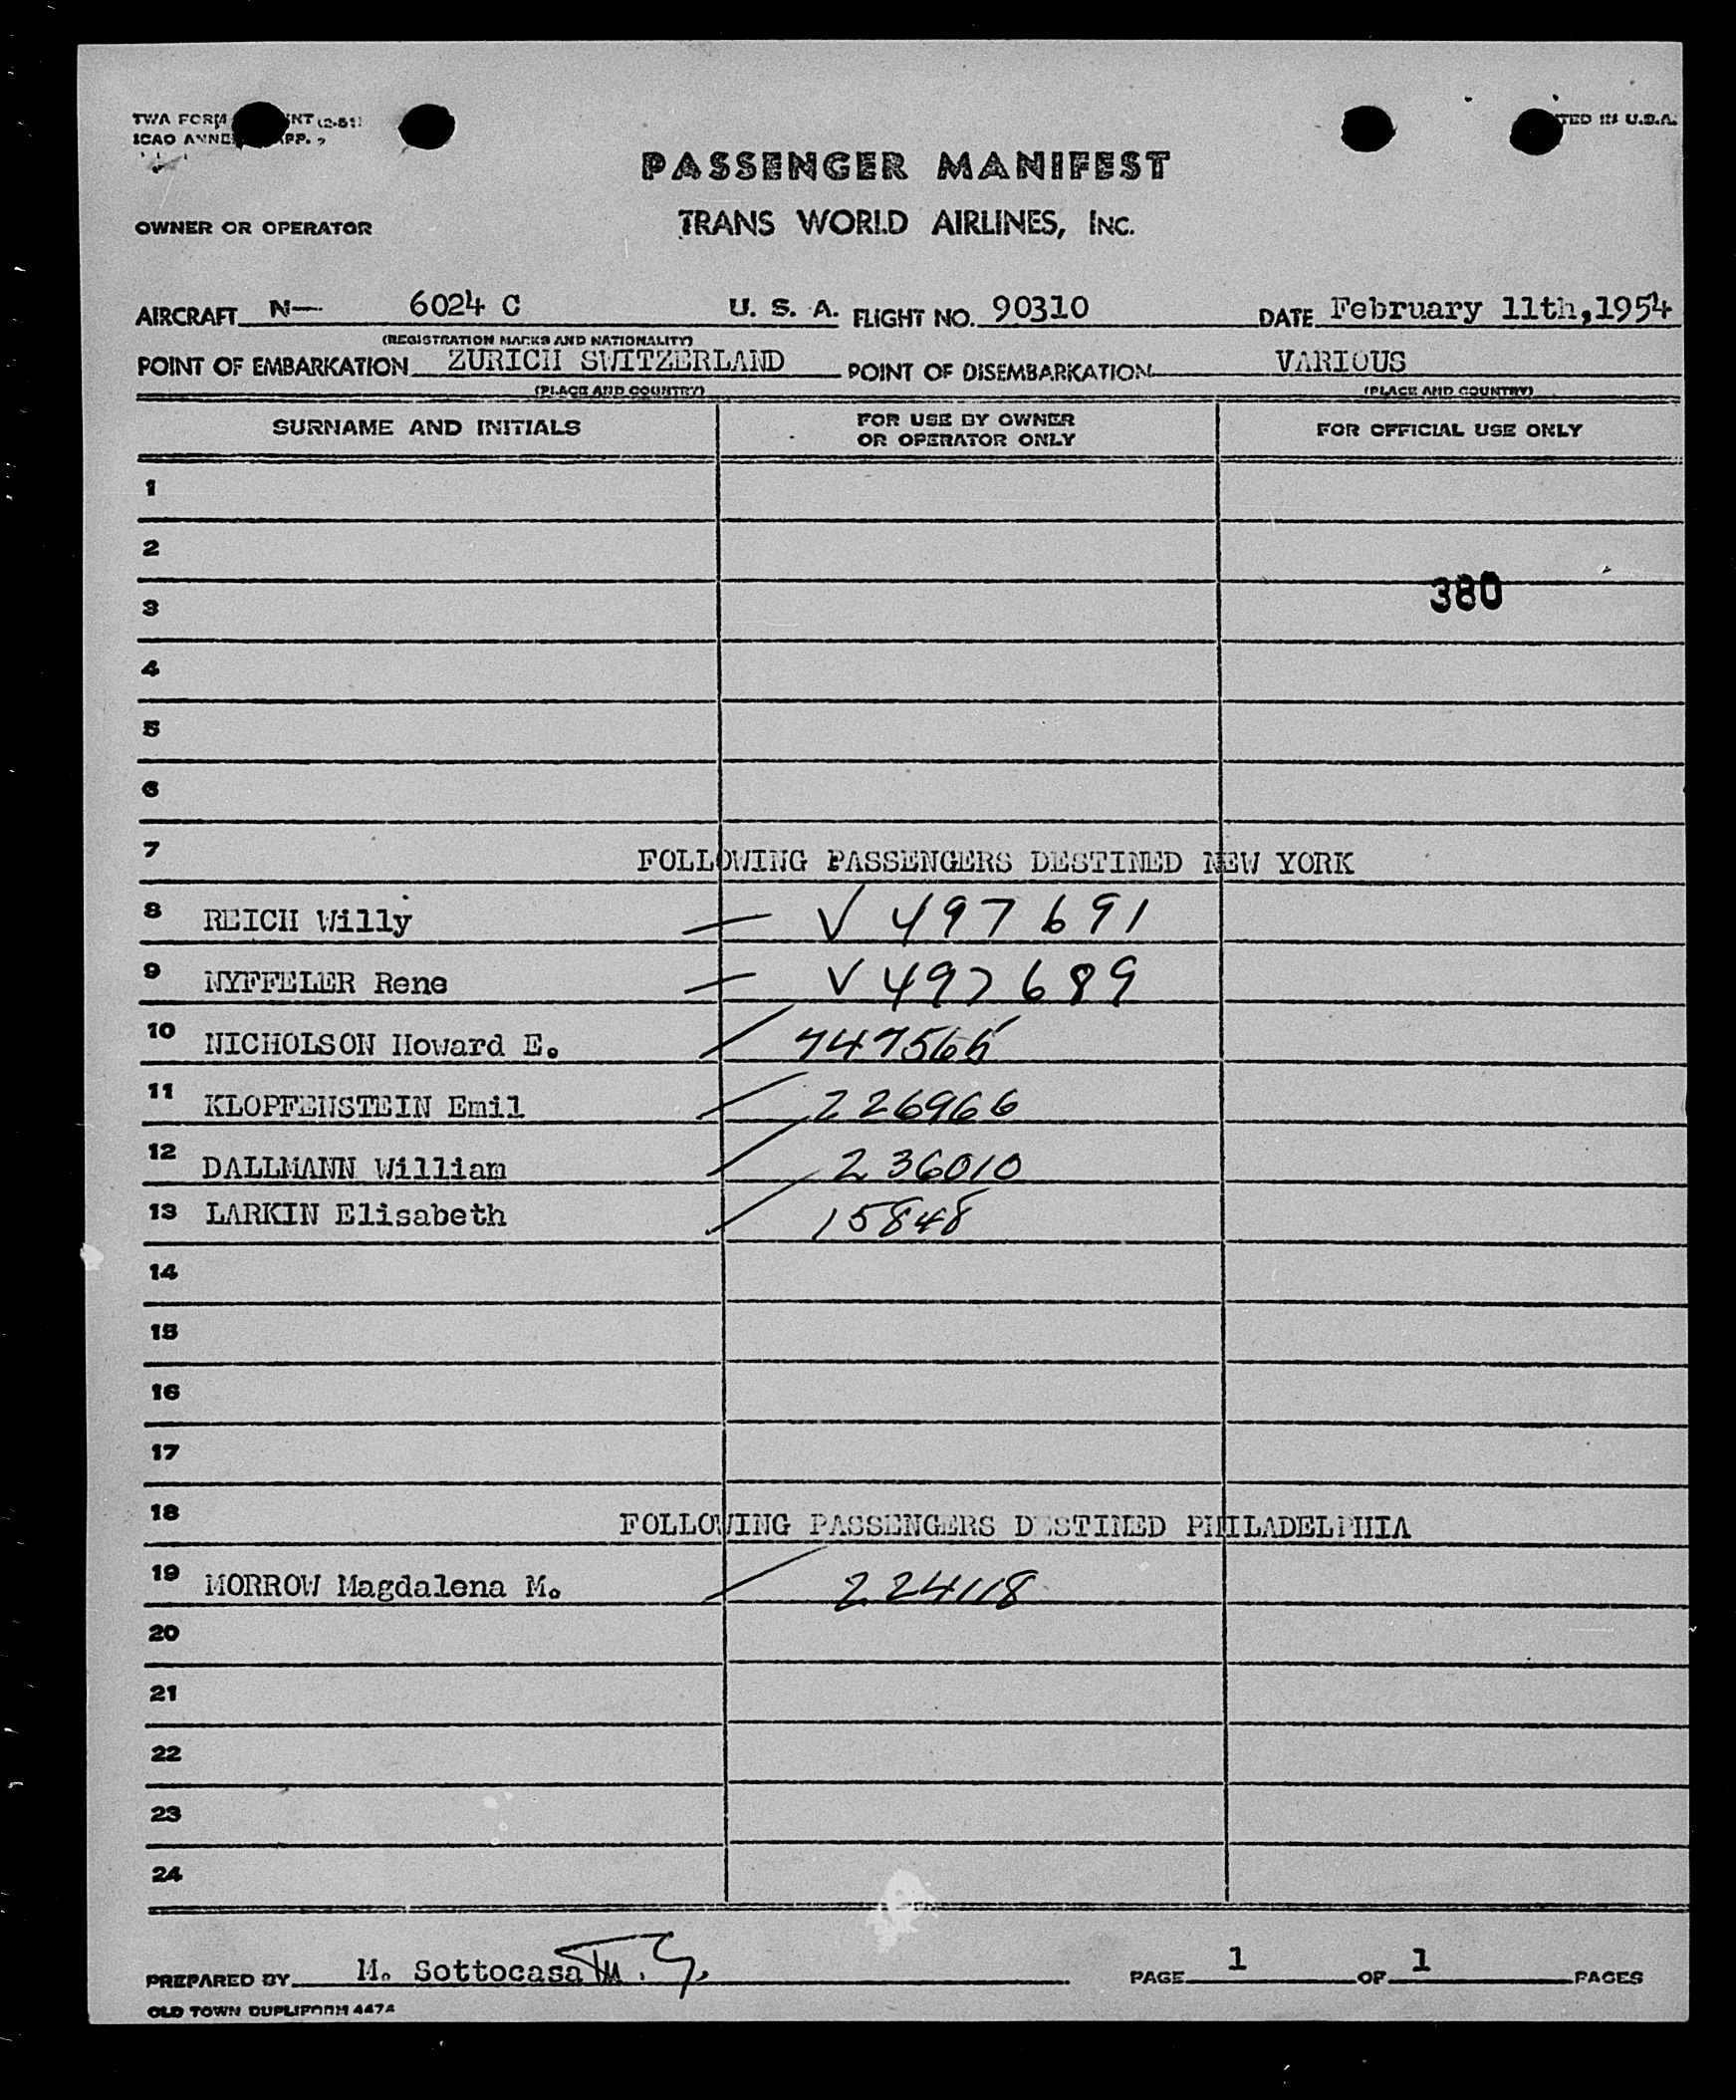 TWA FORM NT (2-51)
ICAO ANNE APP. 2
TED IN U.S.A.
PASSENGER MANIFEST
OWNER OR OPERATOR TRANS WORLD AIRLINES, INC.
AIRCRAFT N— 6024 C U. S. A. FLIGHT NO. 90310 DATE February 11th,1954
(REGISTRATION MARKS AND NATIONALITY)
POINT OF EMBARKATION ZURICH SWITZERLAND POINT OF DISEMBARKATION VARIOUS
(PLACE AND COUNTRY) (PLACE AND COUNTRY)
SURNAME AND INITIALS FOR USE BY OWNER OR OPERATOR ONLY FOR OFFICIAL USE ONLY
1
2
380
3
4
5
6
7 FOLLOWING PASSENGERS DESTINED NEW YORK
8 REICH Willy — V 497691
9 NYFFELER Rene — V 497689
10 NICHOLSON Howard E. /
11 KLOPFENSTEIN Emil / 226966
12 DALLMANN William / 236010
13 LARKIN Elisabeth / 15848
14
15
16
17
18 FOLLOWING PASSENGERS DESTINED PHILADELPHIA
19 MORROW Magdalena M. / 224118
20
21
22
23
24
PREPARED BY M. Sottocasa PAGE 1 OF 1 PAGES
OLD TOWN DUPLIFORM 447A